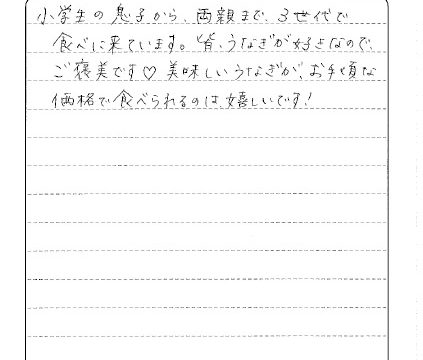 小学生の息子から、両親まで、3世代で
食べに来ています。皆、うなぎが好きなので、
ご褒美です♡ 美味しいうなぎが、お手頃な
価格で食べられるのは、嬉しいです!